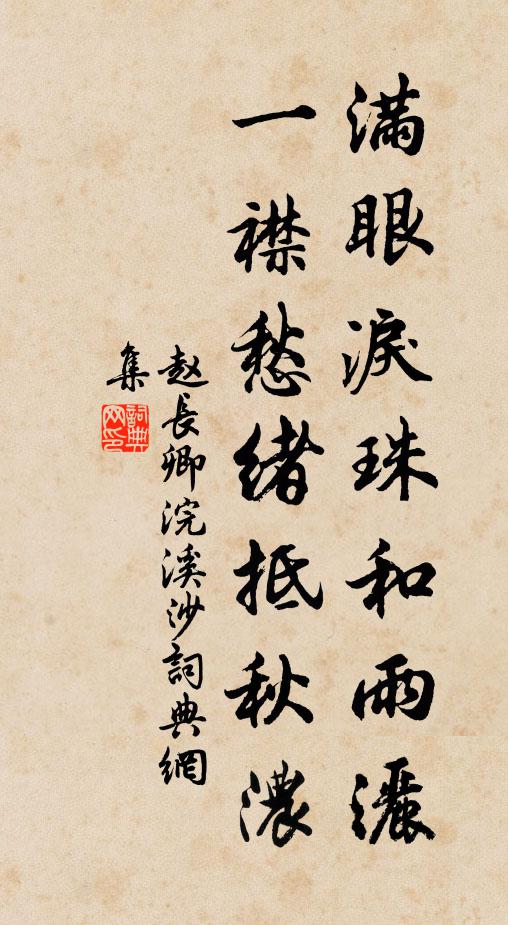 滿眼淚珠和雨灑
一襟愁緒抵秋濃
赵長卿浣溪沙詞典網
集
詞典
网印